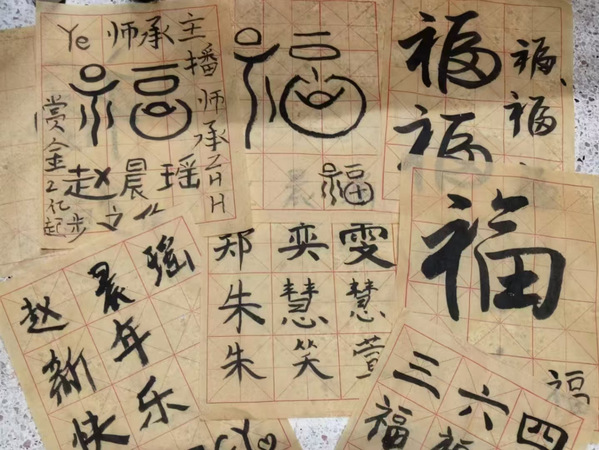 Ye 师承
主播师承ZHH
福
赏金2亿起步
赵晨瑶
福
福
福 福
福 福
福
福
郑 奕 雯
朱 慧 慧
朱 笑 萱
赵 晨 瑶
新 年
快 乐
三 六 四
福 福